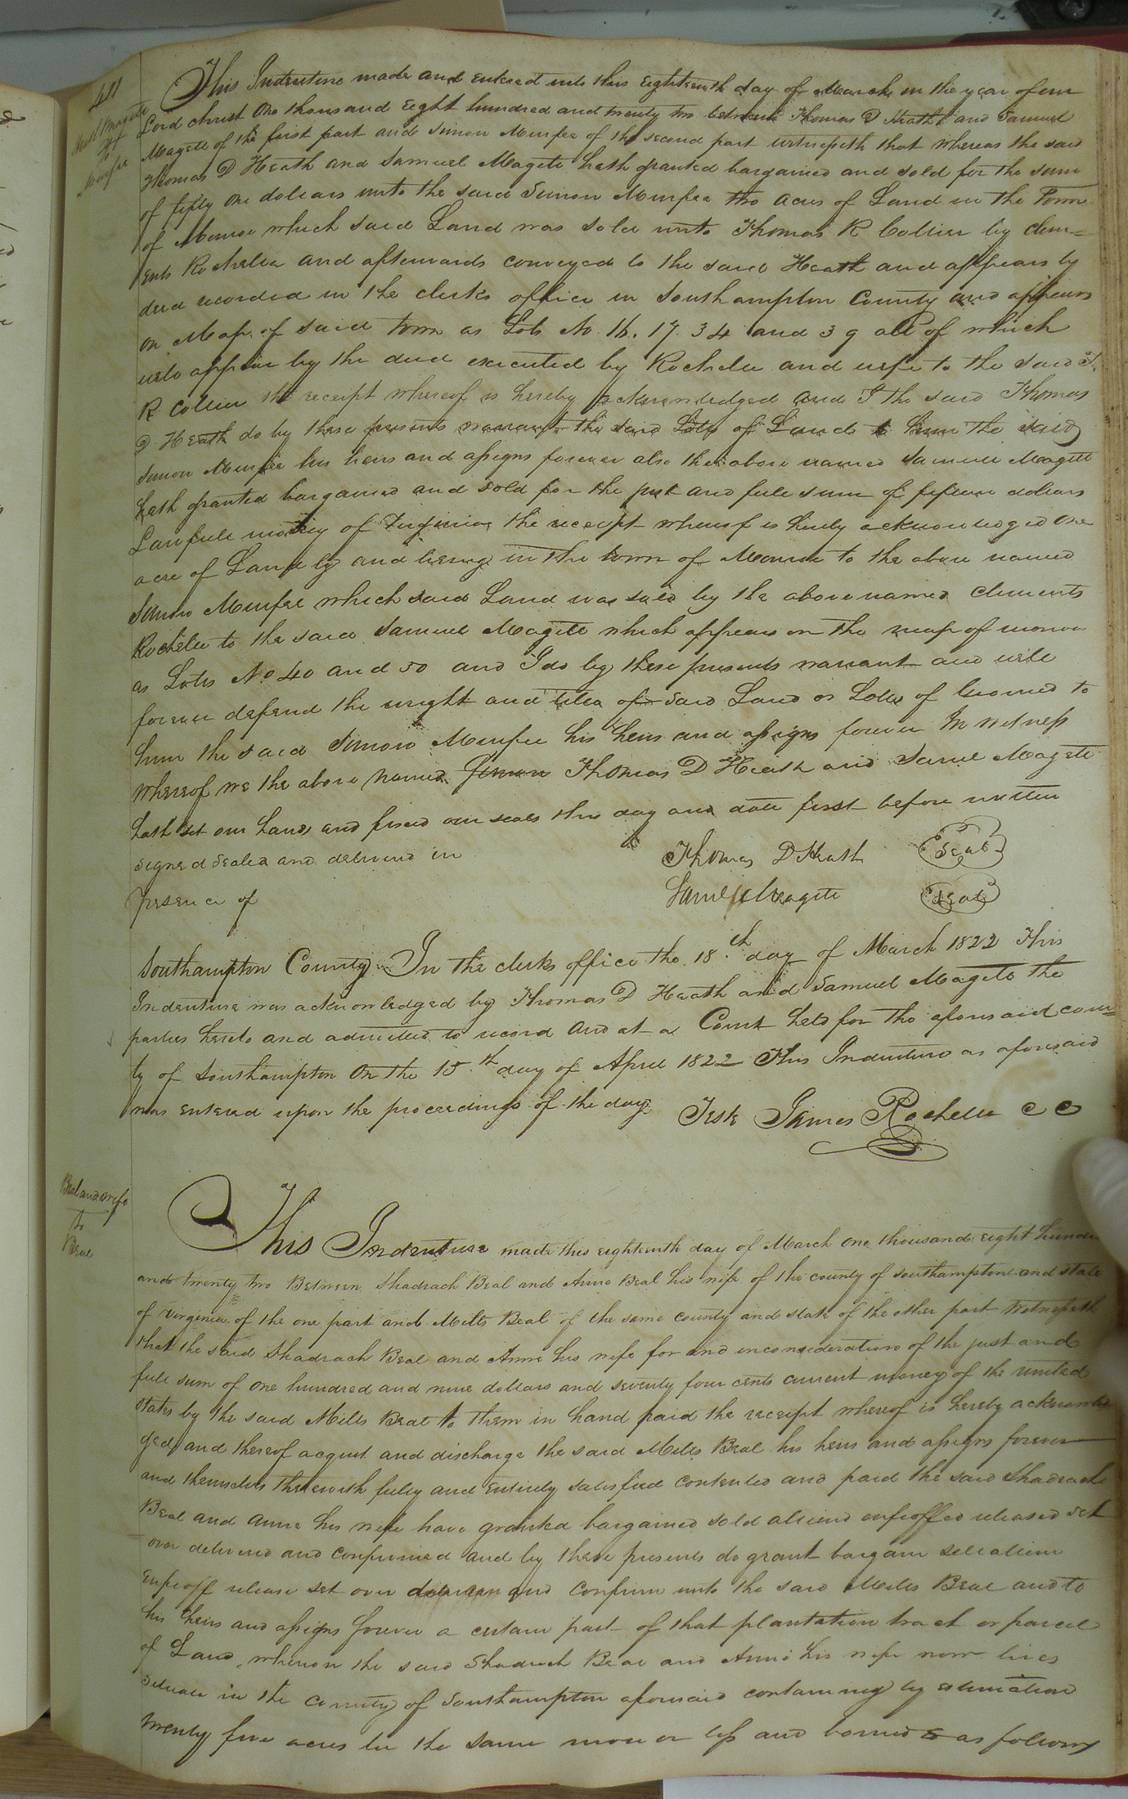 411
This Indenture made and entered into this Eighteenth day of March in the year of our
Lord christ One thousand Eight hundred and twenty two between Thomas D Heath and Samuel
Magete of the first part and Simon Murfee of the second part witnesseth that whereas the said
Thomas D Heath and Samuel Magete hath granted bargained and sold for the sum
of fifty one dollars unto the said Simon Murfee two acres of Land in the Town
of Monroe which said Land was sold unto Thomas R Collier by Clem=
ents Rochelle and afterwards conveyed to the said Heath and appears by
deed recorded in the clerks office in Southampton County and appears
on Map of said town as Lots No 16. 17. 34 and 39 all of which
will appear by the deed executed by Rochelle and wife to the said T.
R Collier the receipt whereof is hereby acknowledged and I the said Thomas
D Heath do by these presents warrant the said Lots of Land to him the said
Simon Murfee his heirs and assigns forever also the above named Samuel Magete
hath granted bargained and sold for the just and full sum of fifteen dollars
Lawfull money of Virginia the receipt whereof is hereby acknowledged one
acre of Land ly and being in the town of Monroe to the above named
Simon Murfee which said Land was sold by the above named Clements
Rochelle to the said Samuel Magete which appears on the map of monroe
as Lotts No 40 and 50 and I do by these presents warrant and will
forever defend the wright and titlea of said Land or Lotts of Ground to
him the said Simon Murfee his heirs and assigns forever In witness
whereof we the above named Simon Thomas D Heath and Samel Magete
hath set our hands and fixed our seals this day and date first before written
signed Sealed and delivered in
presence of
Thomas D Heath Seal
Saml Magete Seal
Southampton County In the clerks office the 18th day of March 1822 This
Indenture was acknowledged by Thomas D Heath and Samuel Magete the
parties hereto and admitted to record and at a Court held for the aforesaid coun=
ty of Southampton On the 15th day of April 1822 This Indenture as aforesaid
was entered upon the proceedings of the day
Teste James Rochelle C C
Beal and wife
to
Beal
This Indenture made this eighteenth day of March one thousand eight hundred
and twenty two Between Shadrach Beal and Anne Beal his wife of the county of Southampton and state
of virginia of the one part and Mills Beal of the same county and state of the other part Witnesseth
that the said Shadrach Beal and Anne his wife for and inconsideration of the just and
full sum of one hundred and nine dollars and seventy four cents current money of the united
states by the said Mills Beal to them in hand paid the receipt whereof is hereby acknowled
ged and thereof acquit and discharge the said Mills Beal his heirs and assigns forever
and themselves therewith fully and Entirely satisfied contented and paid the said Shadrach
Beal and Anne his wife have granted bargained sold aliend enfeoffed released set
over delivered and confirmed and by these presents do grant bargain sell alien
enfeoff release set over deliver and confirm unto the said Mills Beal and to
his heirs and assigns forever a certain part of that plantation tract or parcel
of Land, whereon the said Shadrach Beal and Anne his wife now lives
Situate in the County of Southampton aforesaid containing by estimation
twenty five acres be the same more or less and bound as follows